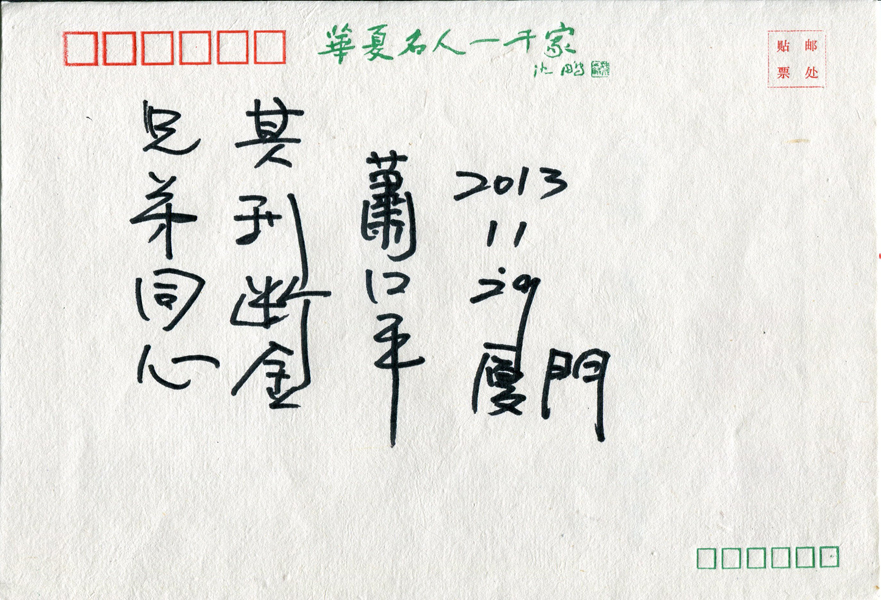 華夏名人一千家
沈鹏
贴邮
票处
兄弟同心
其利断金
蕭口平
2013
11
29
厦門